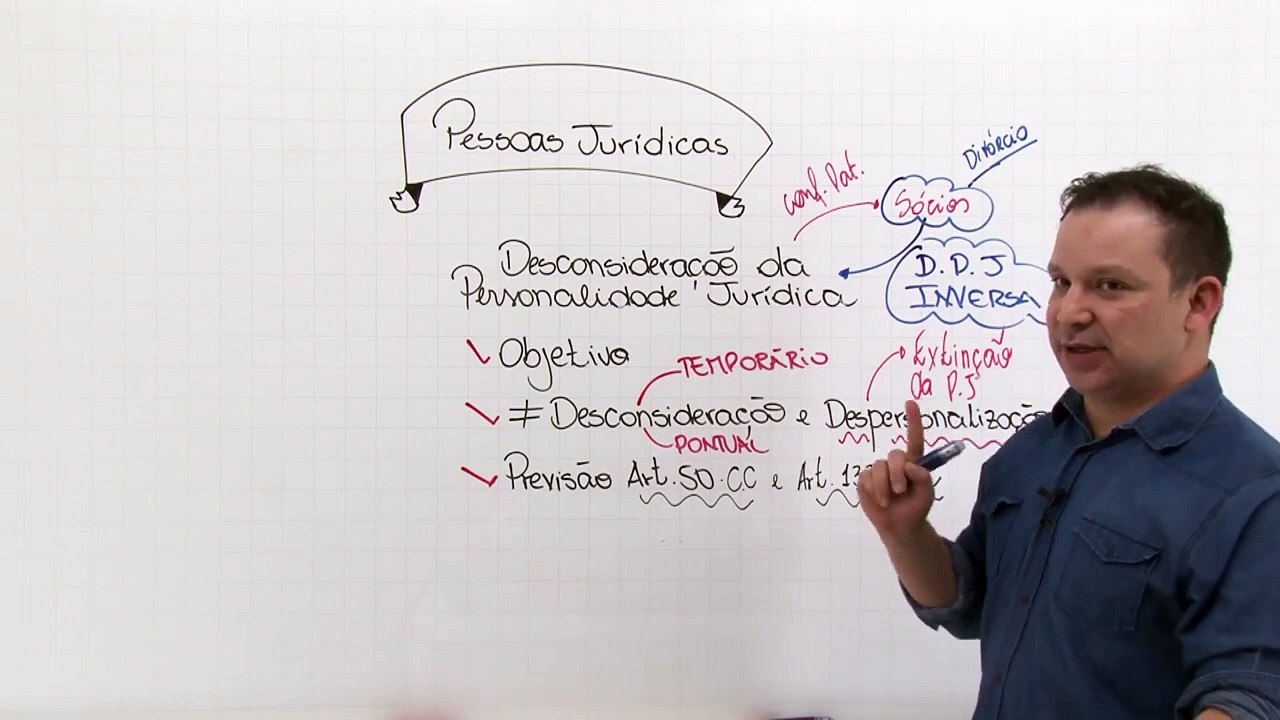 Pessoas Jurídicas
Divórcio
conf. Pat.
Sócios
Desconsideraçõ da
Personalidade Jurídica
D.D.J
INVERSA
Objetivo
TEMPORÁRIO
Extinção
da P.J
≠ Desconsideração e Despersonalização
PONTUAL
Previsão Art. 50. CC e Art.